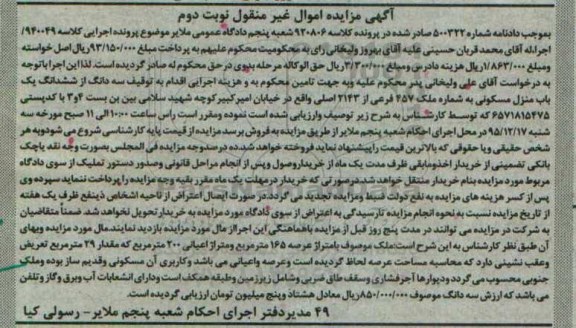 آگهی مزایده اموال غیر منقول نوبت دوم
بموجب دادنامه شماره ۵۰۰۳۲۲ صادر شده در پرونده کلاسه ۹۲۰۸۰۶ شعبه پنجم دادگاه عمومی ملایر موضوع پرونده اجرایی کلاسه ۹۴۰۰۴۹/
اجراله آقای محمد قربان حسینی علیه آقای بهروز ولیخانی رای به محکومیت محکوم علیهم به پرداخت مبلغ ۹۳/۱۵۰/۰۰۰ریال اصل خواسته
ومبلغ ۱/۸۶۳/۰۰۰ریال هزینه دادرسی ومبلغ ۳/۳۰۰/۰۰۰ریال حق الوکاله مرحله بدوی در حق محکوم له صادر گردیده است. لذا این اجرا باتوجه
به درخواست آقای علی ولیخانی پدر محکوم علیه وبه جهت تامین محکوم به و هزینه اجرایی اقدام به توقیف سه دانگ از ششدانگ یک
باب منزل مسکونی به شماره ملک ۴۵۷ فرعی از ۲۱۴۳ اصلی واقع در خیابان امیرکبیر کوچه شهید سلامی بین بن بست ۲و۳ با کدپستی
۶۵۷۱۸۱۵۴۷۵ که توسط کارشناس به شرح زیر توصیف وارزیابی شده است نموده ومقرر است راس ساعت ۱۰:۰۰ الی ۱۱ صبح مورخه سه
شنبه ۹۵/۱۲/۱۷ در محل اجرای احکام شعبه پنجم ملایر از طریق مزایده به فروش برسد مزایده از قیمت پایه کارشناسی شروع می شودوبه هر
شخص حقیقی ویا حقوقی که بالاترین قیمت را پیشنهاد نماید فروخته خواهد شد.ده درصد وجه مزایده فی المجلس بصورت وجه نقد یاچک
بانکی تضمینی از خریدار اخذ ومابقی ظرف مدت یک ماه از خریدار وصول وپس از انجام مراحل قانونی وصدور دستور تملیک از سوی دادگاه
مربوط مورد مزایده بنام خریدار منتقل خواهد شد.در صورتی که خریدار در مهلت یک ماه مقرر بقیه وجه مزایده را پرداخت ننماید سپرده وی
پس از کسر هزینه های مزایده به نفع دولت ضبط ومزایده تجدید می گردد.در صورت ایصال اعتراض از ناحیه اشخاص ذینفع ظرف یک هفته
از تاریخ مزایده نسبت به نحوه انجام مزایده تارسیدگی به اعتراض از سوی دادگاه مورد مزایده به خریدار تحویل نخواهد شد. ضمنا متقاضیان
به شرکت در مزایده می توانند در مدت پنج روز قبل از مزایده باهماهنگی این اجرا از مال مورد مزایده بازدید نمایند.مال مورد مزایده وبهای
آن طبق نظر کارشناس به این شرح است:ملک موصوف بامتراژ عرصه ۱۶۵ مترمربع ومتراژ اعیانی ۲۰۰ مترمربع که مقدار ۲۹ مترمربع تعریض
وعقب نشینی دارد که محاسبه مساحت عرصه لحاظ گردیده است وعرصه واعیانی می باشد وکاربری آن مسکونی وقدیم ساز بوده وملک
جنوبی محسوب می گردد ودیوارها آجرفشاری وسقف طاق ضربی وشامل زیرزمین وطبقه همکف است ودارای انشعابات آب وبرق وگاز وتلفن
می باشد که ارزش سه دانگ موصوف ۸۵۰/۰۰۰/۰۰۰ریال معادل هشتاد وپنج میلیون تومان ارزیابی گردیده است.
۴۹ مدیردفتر اجرای احکام شعبه پنجم ملایر– رسولی کیا